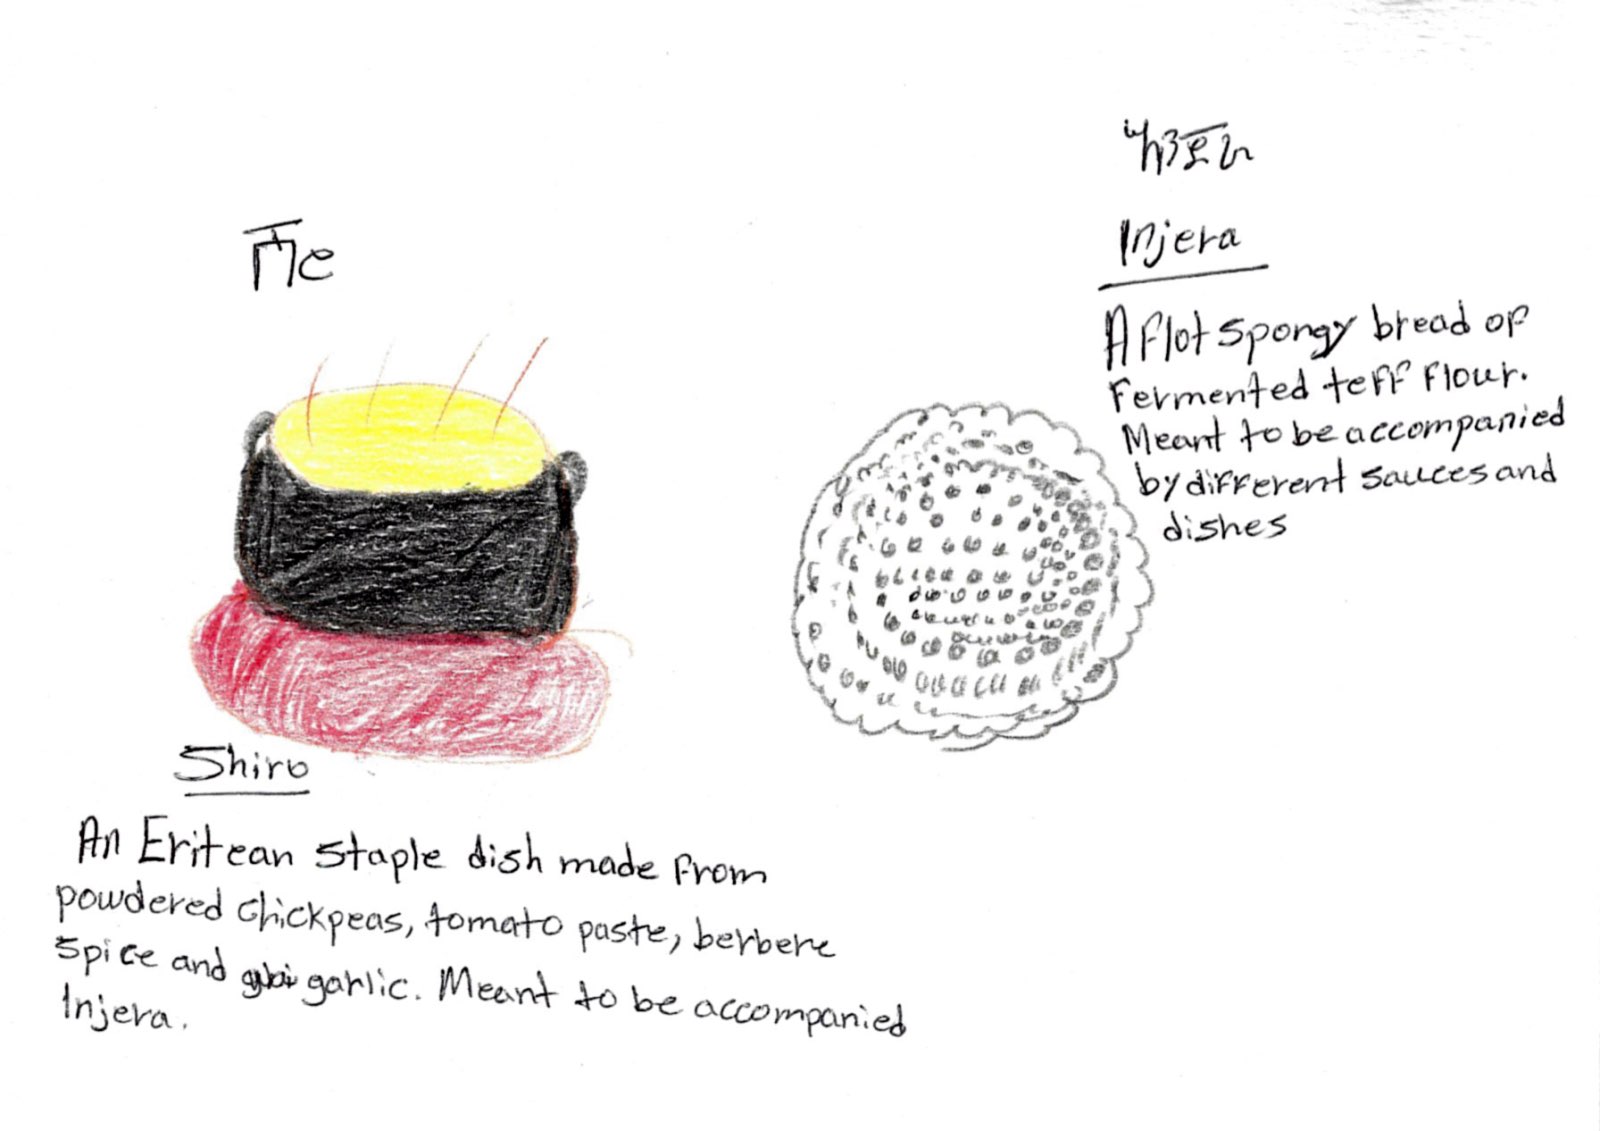 ሽሮ
Shiro
An Eritean staple dish made from
powdered chickpeas, tomato paste, berbere
spice and garlic. Meant to be accompanied
Injera.
እንጀራ
Injera
A flat spongy bread of
fermented teff flour.
Meant to be accompanied
by different sauces and
dishes